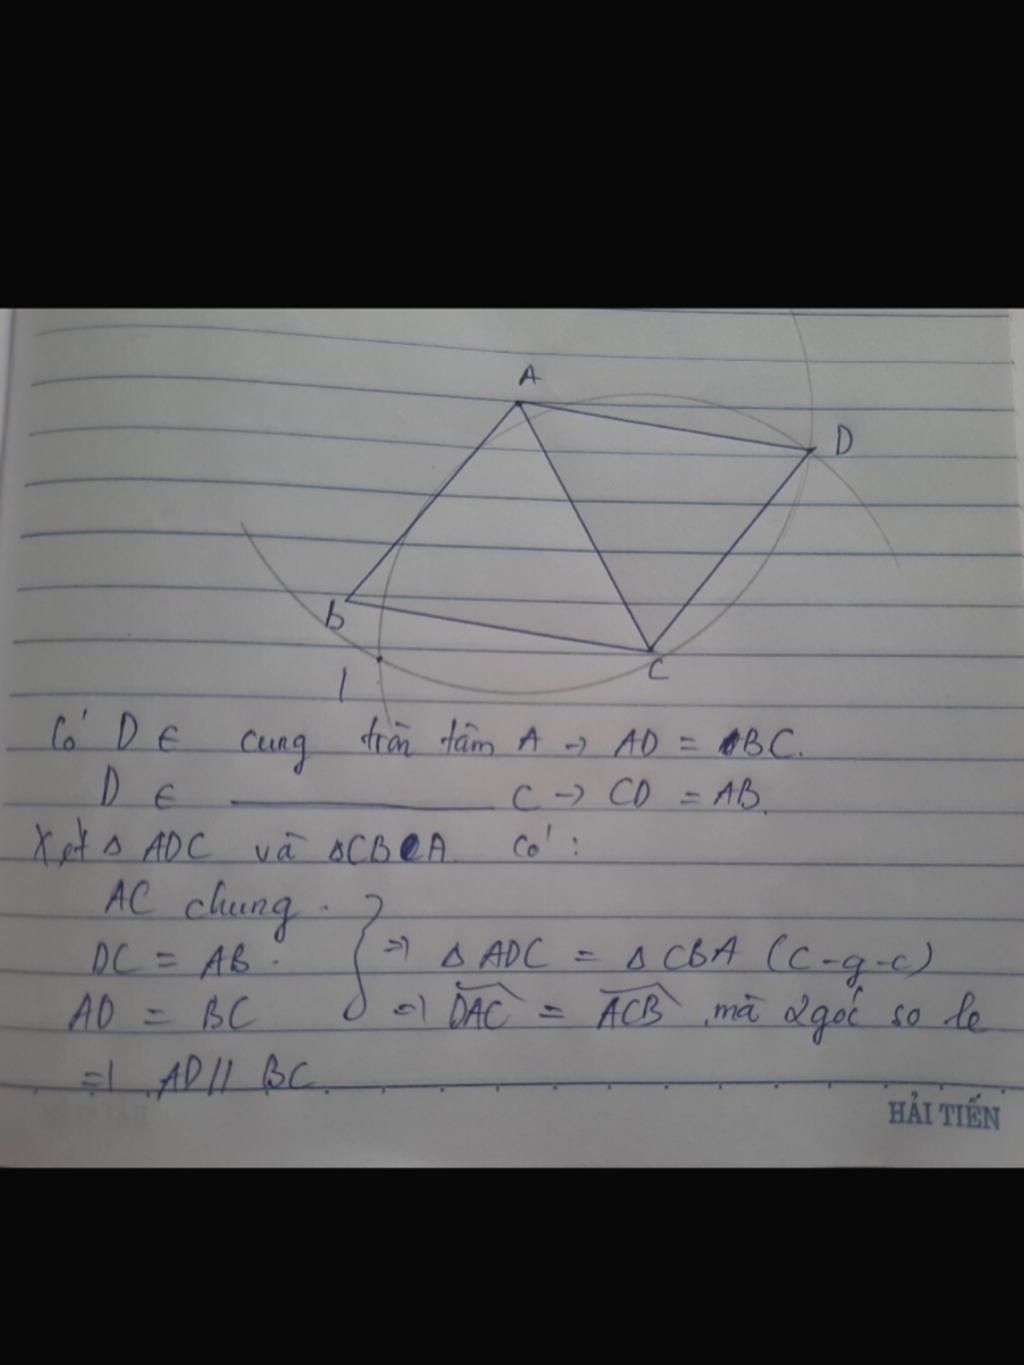 A
D
B
C
1
Có D ∈ cung tròn tâm A → AD = BC.
D ∈ ———— C → CD = AB.
Xét Δ ADC và ΔCBA có:
AC chung.
DC = AB.
AD = BC
=> Δ ADC = Δ CBA (c-g-c)
=> DAC = ACB, mà 2 góc so le
=> AD // BC
HẢI TIẾN